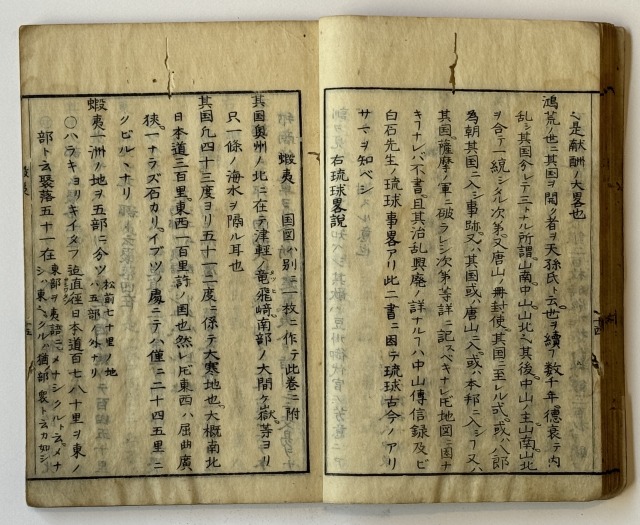 是献酬ノ大畧也
鴻荒ノ世ニ其国ヲ闢ク者ヲ天孫氏ト云世ヲ續ク数千年德衰テ内
乱シ其国分レテ三トナル所謂山南中山山北ニ其後中山ノ主山南山北
ヲ合テ一統シタル次第又唐山ノ冊封使其国ニ至レル式或ハ八郎
為朝其国ニ入シ事跡又ハ其国或ハ唐山ニ入或ハ本邦ニ入シ又ハ
其国薩摩ノ軍ニ破ラレシ次第等詳ニ記スベキナレ𪜈地図ニ因ナ
キヿナレバ不書且其治乱興廃ノ詳ナルヿハ中山傳信録及ビ
白石先生ノ琉球事畧アリ此二書ニ因テ琉球古今ノアリ
サマヲ知ベシ
右琉球畧説
蝦夷 国図ハ別ニ一枚ニ作テ此巻ニ附
其国奥州ノ北ニ在テ津軽ノ竜飛崎南部ノ大間ケ嶽等ヨリ
只一條ノ海水ヲ隔ル耳也
其国凢四十三度ヨリ五十一二度ニ係テ大寒地也大概南北
日本道三百里東西一百里許ノ国也然レ𪜈東西ハ屈曲廣
狭一ナラズ石カリイブツノ處ニテハ僅ニ二十四五里ニ
ノビルヽナリ
蝦夷一洲ノ地ヲ五部ニ分ツ 松前七十里ノ地ハ五部ノ外ナリ
〇ハラキヨリキイタフ迄直徑日本道百七八十里ヲ東ノ
部ト云聚落五十一在 東部ヲ夷語ニメナシクルト云メナシハ東ヿクルハ猶部衆ト云カ如シ